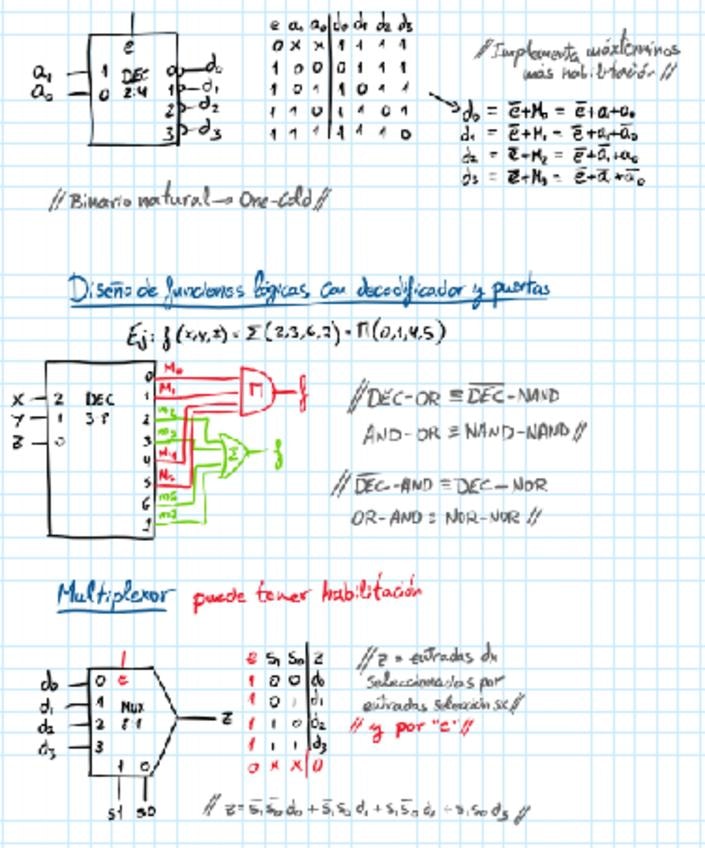 e a₁ a₀ d₀ d₁ d₂ d₃
0 x x 1 1 1 1
1 0 0 0 1 1 1
1 0 1 1 0 1 1
1 1 0 1 1 0 1
1 1 1 1 1 1 0
e
a₁ 1 DEC 0 d₀
a₀ 0 2:4 1 d₁
2 d₂
3 d₃
// Implementa máxterminos
más habilitación //
d₀ = e̅+M₀ = e̅+a₁+a₀
d₁ = e̅+M₁ = e̅+a₁+a̅₀
d₂ = e̅+M₂ = e̅+a̅₁+a₀
d₃ = e̅+M₃ = e̅+a̅+a̅₀
// Binario natural → One-Cold //
Diseño de funciones lógicas con decodificador y puertas
Ej: f(x,y,z) = Σ(2,3,6,7) = Π(0,1,4,5)
X 2 DEC
Y 1 3:8
Z 0
0 M₀
1 M₁
2 m₂
3 m₃
4 M₄
5 M₅
6 m₆
7 m₇
Π f
Σ f
// DEC-OR ≡ D̅E̅C̅-NAND
AND-OR ≡ NAND-NAND //
// D̅E̅C̅-AND ≡ DEC-NOR
OR-AND ≡ NOR-NOR //
Multiplexor puede tener habilitación
d₀ 0 e
d₁ 1 MUX
d₂ 2
d₃ 3
1 0
S1 S0
z
e S₁ S₀ z
1 0 0 d₀
1 0 1 d₁
1 1 0 d₂
1 1 1 d₃
0 x x 0
// z = entradas dx
seleccionadas por
entradas selección sx //
// y por "e" //
// z = s̅₁s̅₀d₀ + s̅₁s₀d₁ + s₁s̅₀d₂ + s₁s₀d₃ //